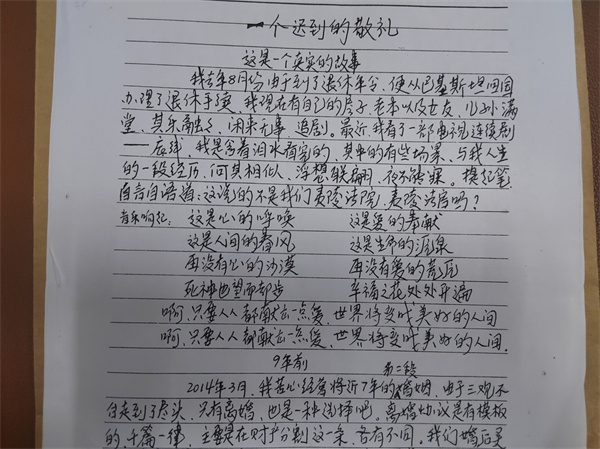 一个迟到的敬礼
这是一个真实的故事
我去年8月份由于到了退休年令，便从巴基斯坦回国
办理了退休手续，我现在有自己的房子，老本以及女友，儿孙满
堂，其乐融融，闲来无事，追剧。最近我看了一部电视连续剧
——底线，我是含着泪水看完的，其中的有些场景，与我人生
的一段经历，何其相似，浮想联翩，夜不能寐。提起笔
自言自语道：这说的不是我们夷陵法院，夷陵法官吗？
音乐响起：这是心的呼唤 这是爱的奉献
这是人间的春风 这是生命的源泉
再没有心的沙漠 再没有爱的荒原
死神也望而却步 幸福之花处处开遍
啊，只要人人都献出一点爱，世界将变成美好的人间
啊，只要人人都献出一点爱，世界将变成美好的人间。
9年前 第二段
2014年3月，我苦心经营将近7年的婚姻，由于三观不
合走到了尽头，只有离婚，也是一种选择吧。离婚协议是有模板
的，千篇一律，主要是在财产分割这一条，各有不同。我们婚后